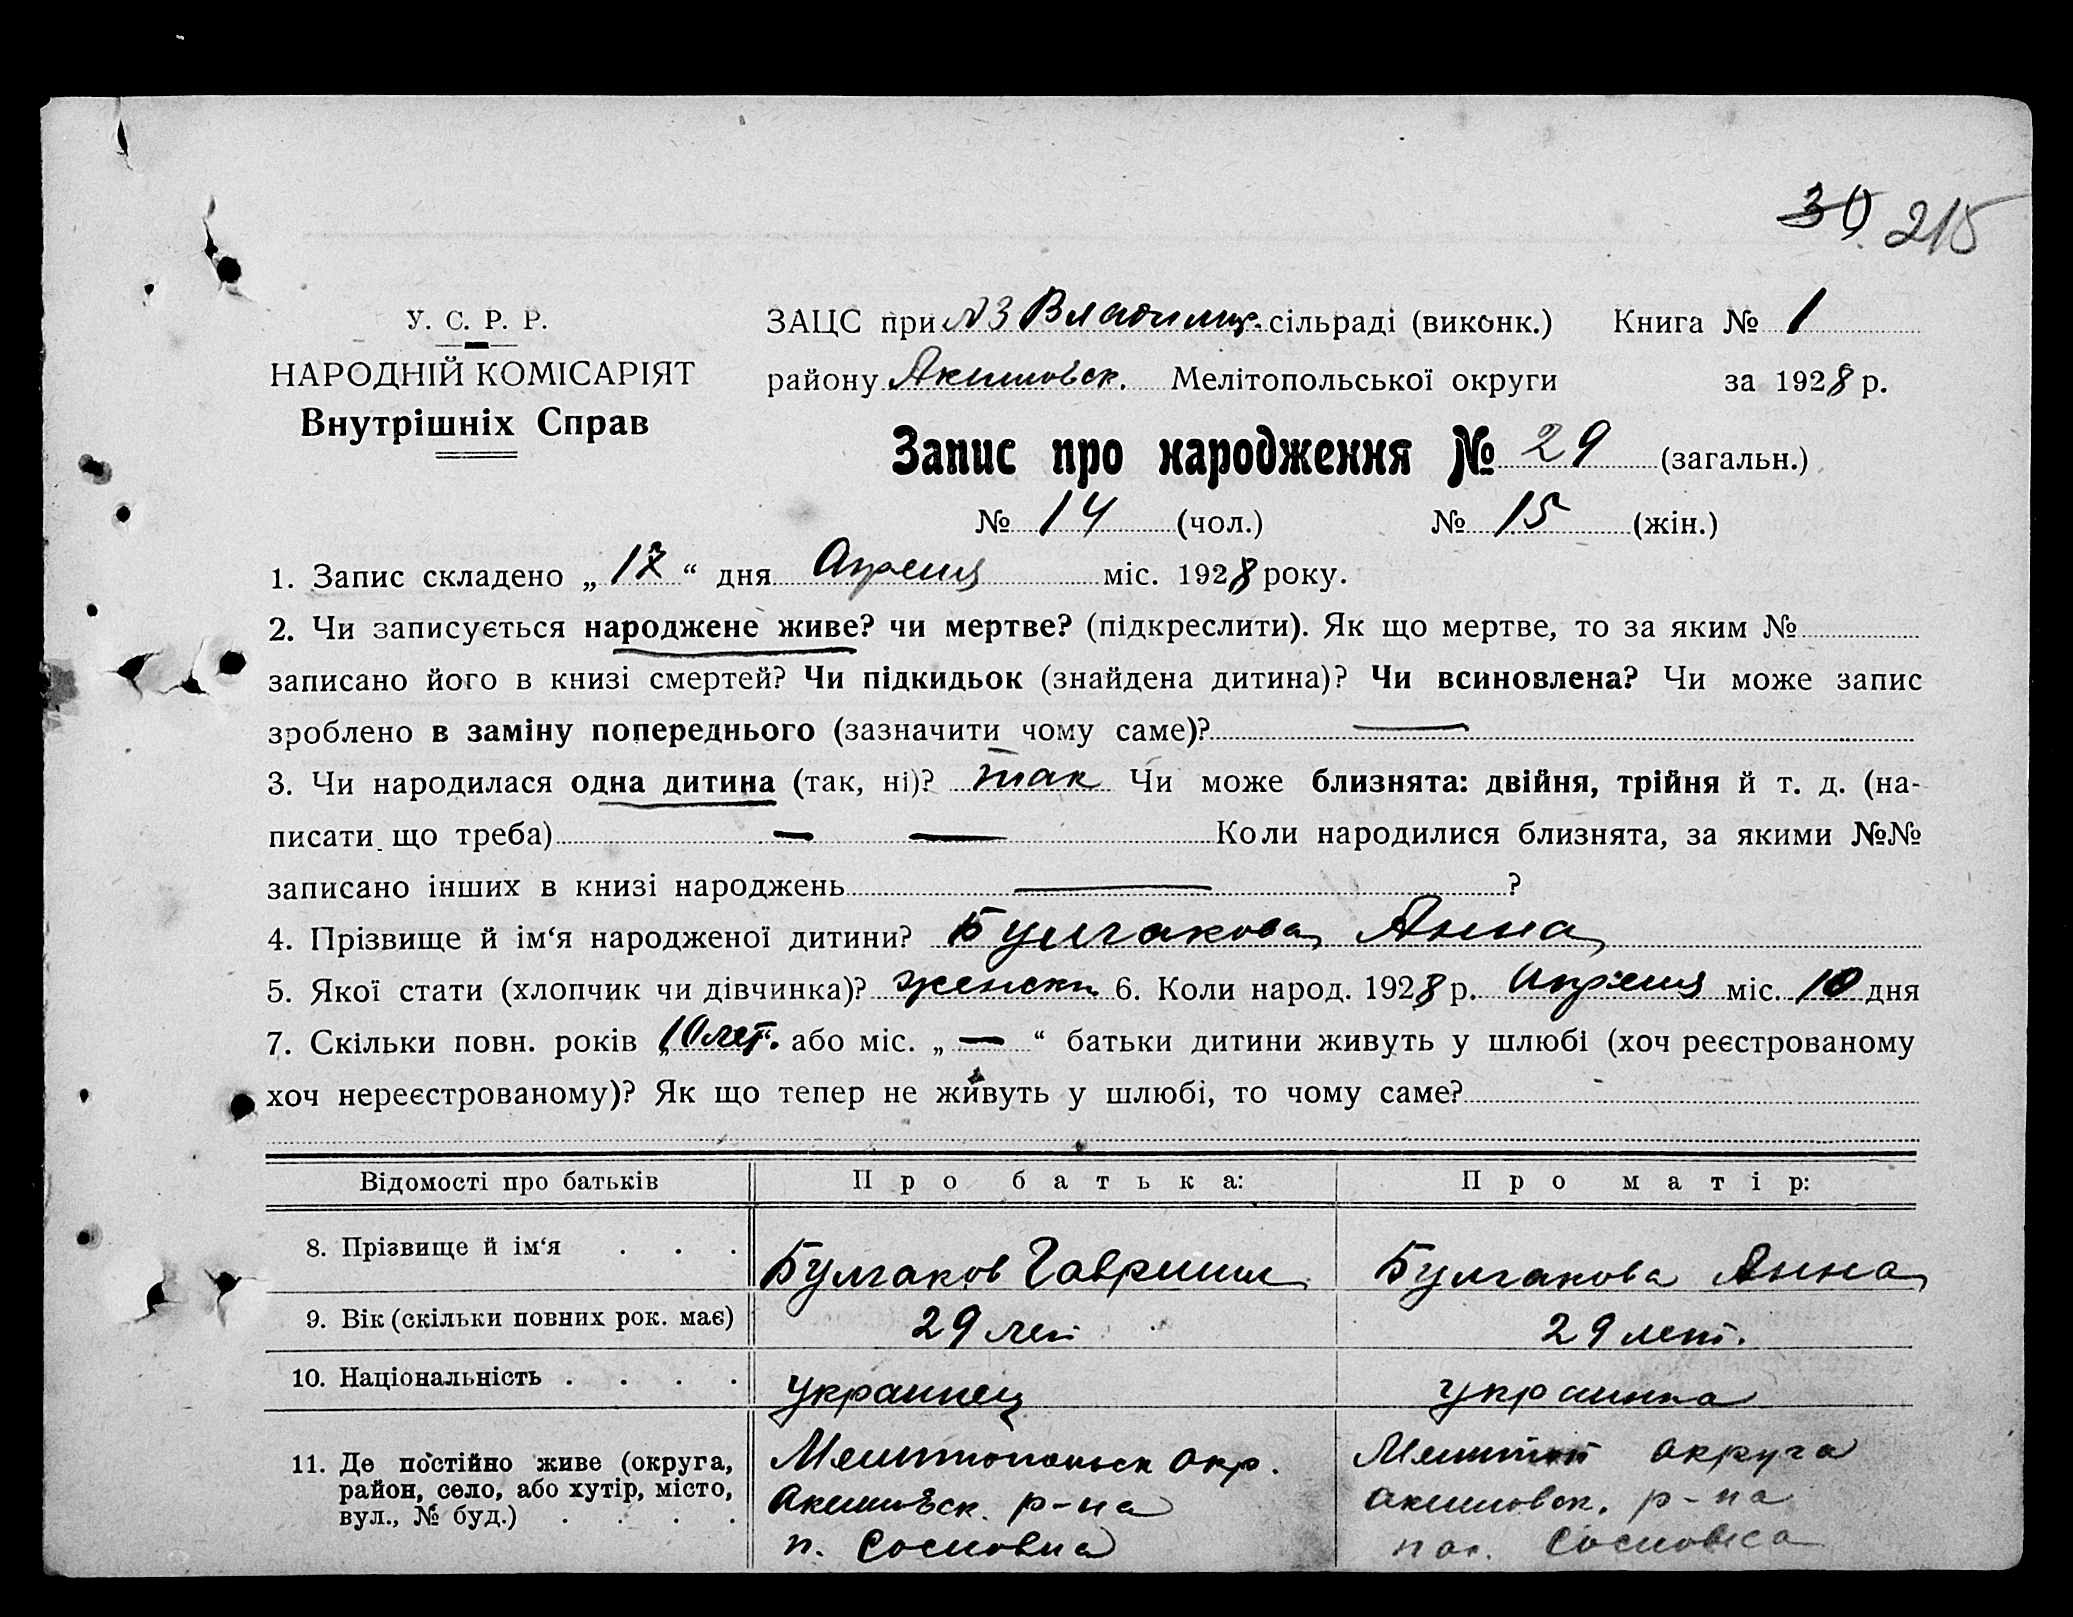 30 215
У. С. Р. Р.
НАРОДНІЙ КОМІСАРІЯТ
Внутрішніх Справ
ЗАЦС при №3 Владимир. сільраді (виконк.) Книга № 1
району Акимовск. Мелітопольської округи за 1928 р.
Запис про народження № 29 (загальн.)
№ 14 (чол.) № 15 (жін.)
1. Запис складено „ “ дня Апреля міс. 1928 року.
2. Чи записується народжене живе? чи мертве? (підкреслити). Як що мертве, то за яким №
записано його в книзі смертей? Чи підкидьок (знайдена дитина)? Чи всиновлена? Чи може запис
зроблено в заміну попереднього (зазначити чому саме)? —
3. Чи народилася одна дитина (так, ні)? так Чи може близнята: двійня, трійня й т. д. (на-
писати що треба) — — Коли народилися близнята, за якими №№
записано інших в книзі народжень — ?
4. Прізвище й ім‘я народженої дитини? Булгакова Анна
5. Якої стати (хлопчик чи дівчинка)? женск. 6. Коли народ. 1928 р. Апреля міс. 10 дня
7. Скільки повн. років „10 лет“. або міс. „ — “ батьки дитини живуть у шлюбі (хоч реєстрованому
хоч нереєстрованому)? Як що тепер не живуть у шлюбі, то чому саме?
Відомості про батьків Про батька: Про матір:
8. Прізвище й ім‘я . . . Булгаков Гавриил Булгакова Анна
9. Вік (скільки повних рок. має) 29 лет 29 лет.
10. Національність . . . . украинец украинка
11. Де постійно живе (округа, район, село, або хутір, місто, вул., № буд.) . . . .
Мелитопольск окр. Мелитоп округа
Акимовск. р-на Акимовск. р-на
п. Сосновка пос. Сосновка